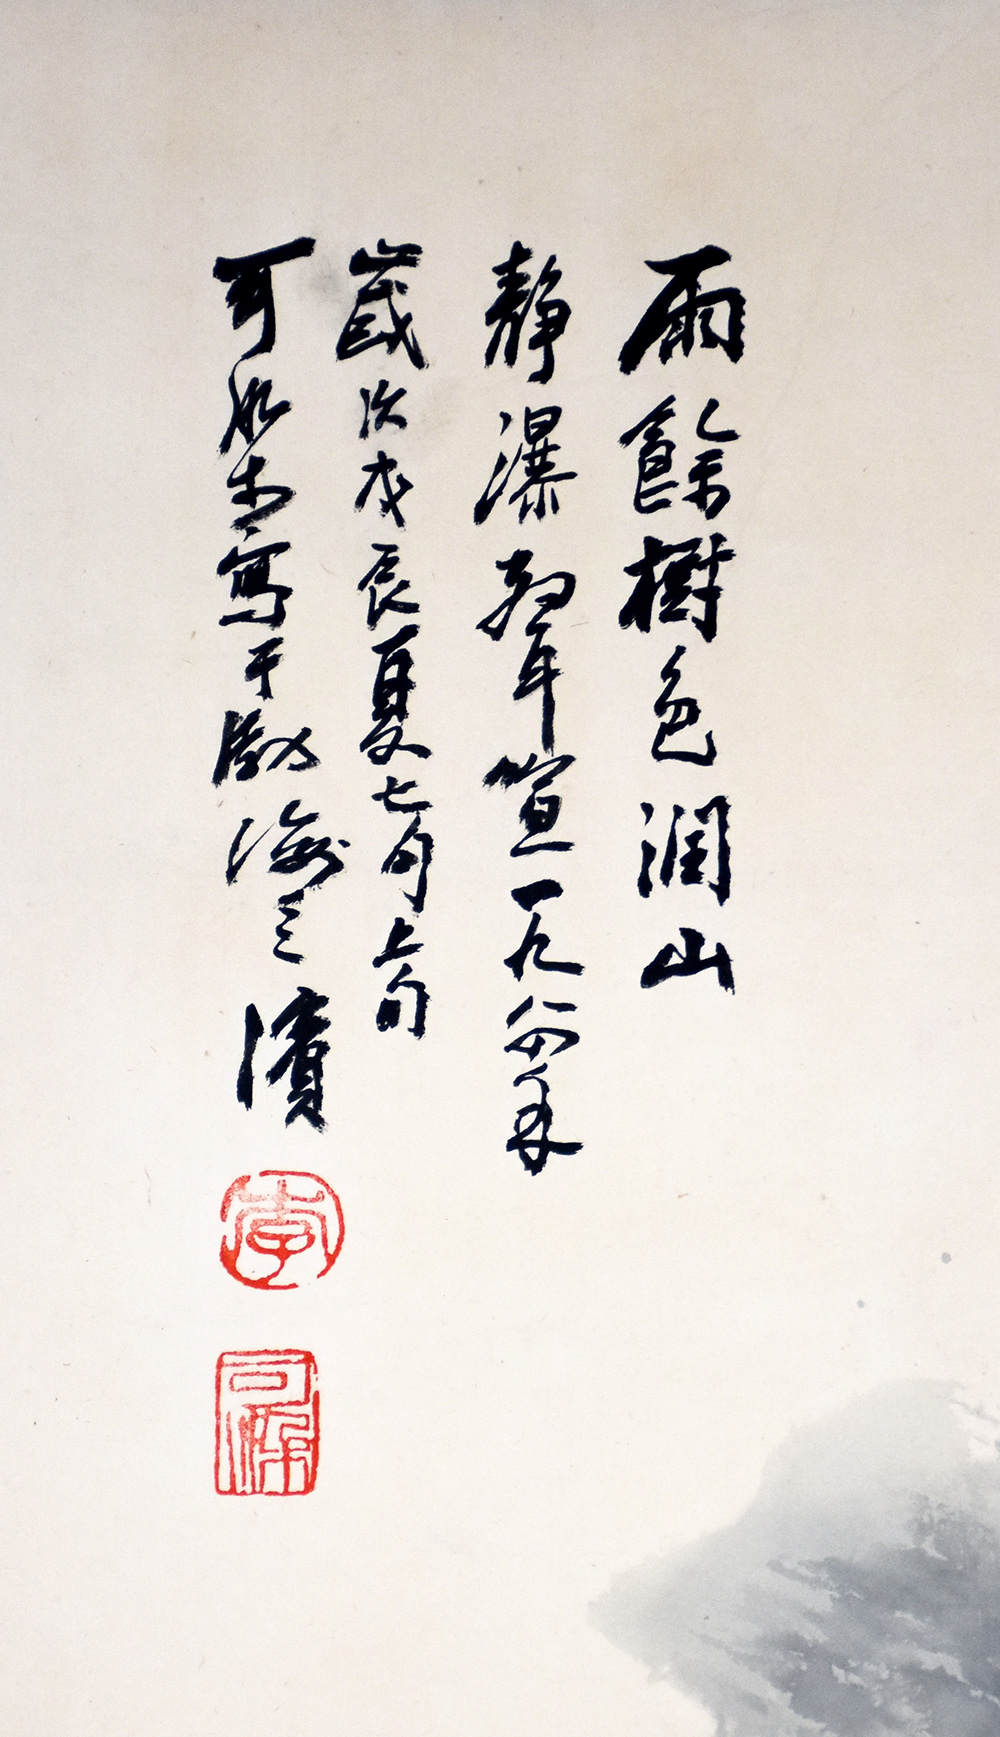 雨餘樹色潤山
靜瀑聲喧一九八八年
歲次戊辰夏七月上旬
可染寫于渤海之濱
李
可染